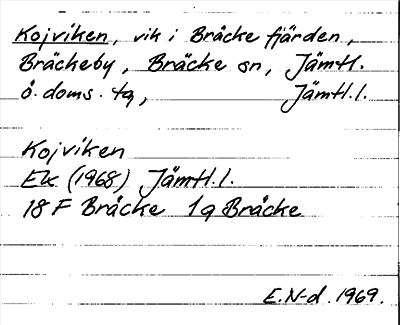 Kojviken, vik i Bräcke fjärden,
Bräckeby, Bräcke sn, Jämtl.
ö. doms. tg, Jämtl.l.
Kojviken
Ek (1968) Jämtl.l.
18 F Bräcke 1g Bräcke
E.N-d. 1969.